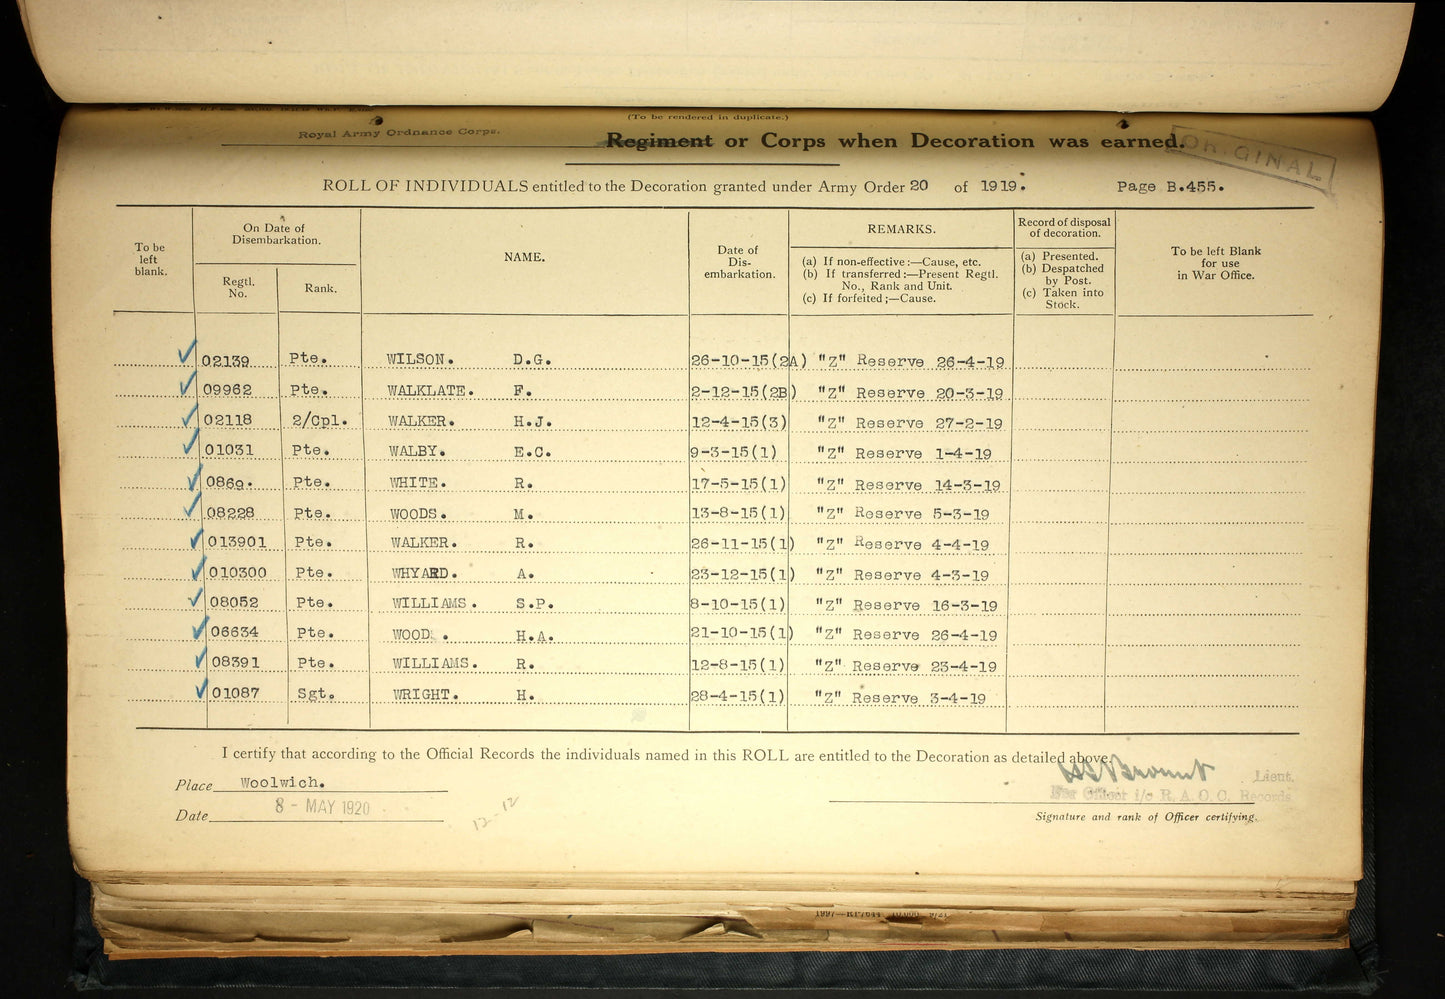 (To be rendered in duplicate.)
Royal Army Ordnance Corps.
Regiment or Corps when Decoration was earned.
ORIGINAL
ROLL OF INDIVIDUALS entitled to the Decoration granted under Army Order 20 of 1919. Page B.455.
To be left blank.
On Date of Disembarkation.
Regtl. No.
Rank.
NAME.
Date of Dis-embarkation.
REMARKS.
(a) If non-effective :—Cause, etc.
(b) If transferred :—Present Regtl. No., Rank and Unit.
(c) If forfeited ;—Cause.
Record of disposal of decoration.
(a) Presented.
(b) Despatched by Post.
(c) Taken into Stock.
To be left Blank for use in War Office.
02139 Pte. WILSON. D.G. 26-10-15(2A) "Z" Reserve 26-4-19
09962 Pte. WALKLATE. F. 2-12-15(2B) "Z" Reserve 20-3-19
02118 2/Cpl. WALKER. H.J. 12-4-15(3) "Z" Reserve 27-2-19
01031 Pte. WALBY. E.C. 9-3-15(1) "Z" Reserve 1-4-19
0869. Pte. WHITE. R. 17-5-15(1) "Z" Reserve 14-3-19
08228 Pte. WOODS. M. 13-8-15(1) "Z" Reserve 5-3-19
013901 Pte. WALKER. R. 26-11-15(1) "Z" Reserve 4-4-19
010300 Pte. WHYARD. A. 23-12-15(1) "Z" Reserve 4-3-19
08052 Pte. WILLIAMS. S.P. 8-10-15(1) "Z" Reserve 16-3-19
06634 Pte. WOOD. H.A. 21-10-15(1) "Z" Reserve 26-4-19
08391 Pte. WILLIAMS. R. 12-8-15(1) "Z" Reserve 23-4-19
01087 Sgt. WRIGHT. H. 28-4-15(1) "Z" Reserve 3-4-19
I certify that according to the Official Records the individuals named in this ROLL are entitled to the Decoration as detailed above.
Place Woolwich.
Lieut.
For Officer i/c R. A. O. C. Records
Date 8 - MAY 1920
12-12
Signature and rank of Officer certifying.